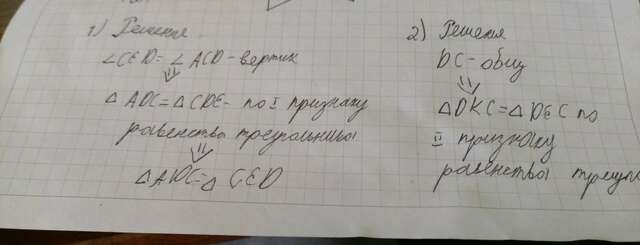 1) Решения
∠CED = ∠ACD - вертик
⇓
△ADC = △CDE - по I признаку
равенства треугольника
⇓
△ADC = △CED
2) Решения
DC - общ
⇓
△DKC = △DEC по
II признаку
равенства треуго